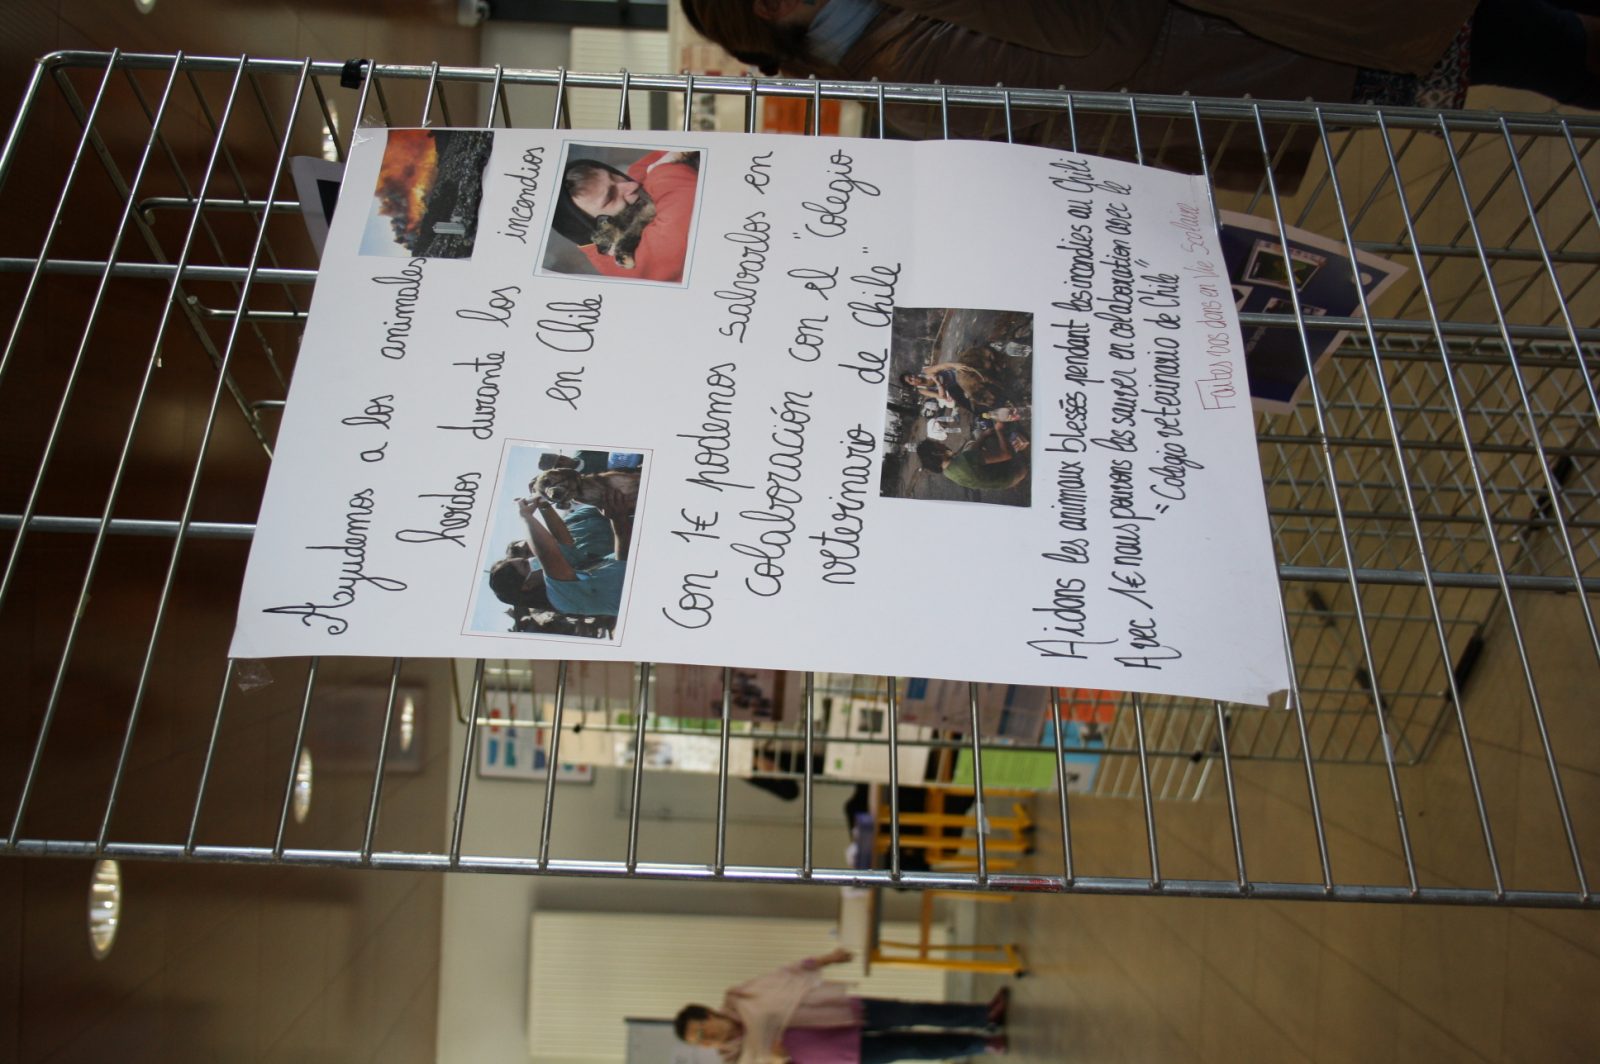 Ayudemos a los animales
heridos durante los incendios
en Chile
Con 1€ podemos salvarlos en
colaboración con el "Colegio
veterinario de Chile"
Aidons les animaux blessés pendant les incendies au Chili
Avec 1€ nous pouvons les sauver en colaboration avec le
"Colegio veterinario de Chile"
Faites vos dons en Vie Scolaire